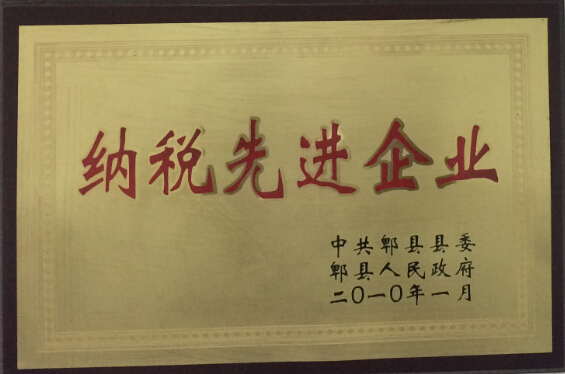 纳税先进企业
中共郫县县委
郫县人民政府
二〇一〇年一月